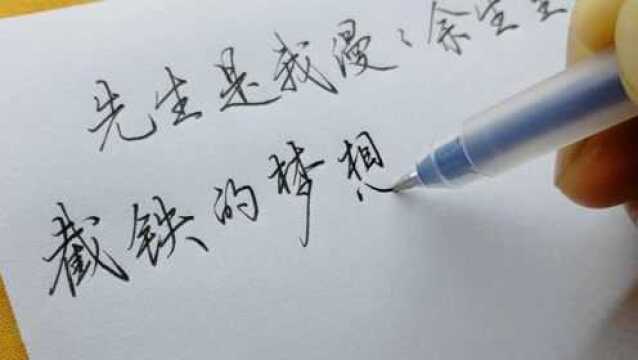 先生是我漫々余生
截铁的梦想